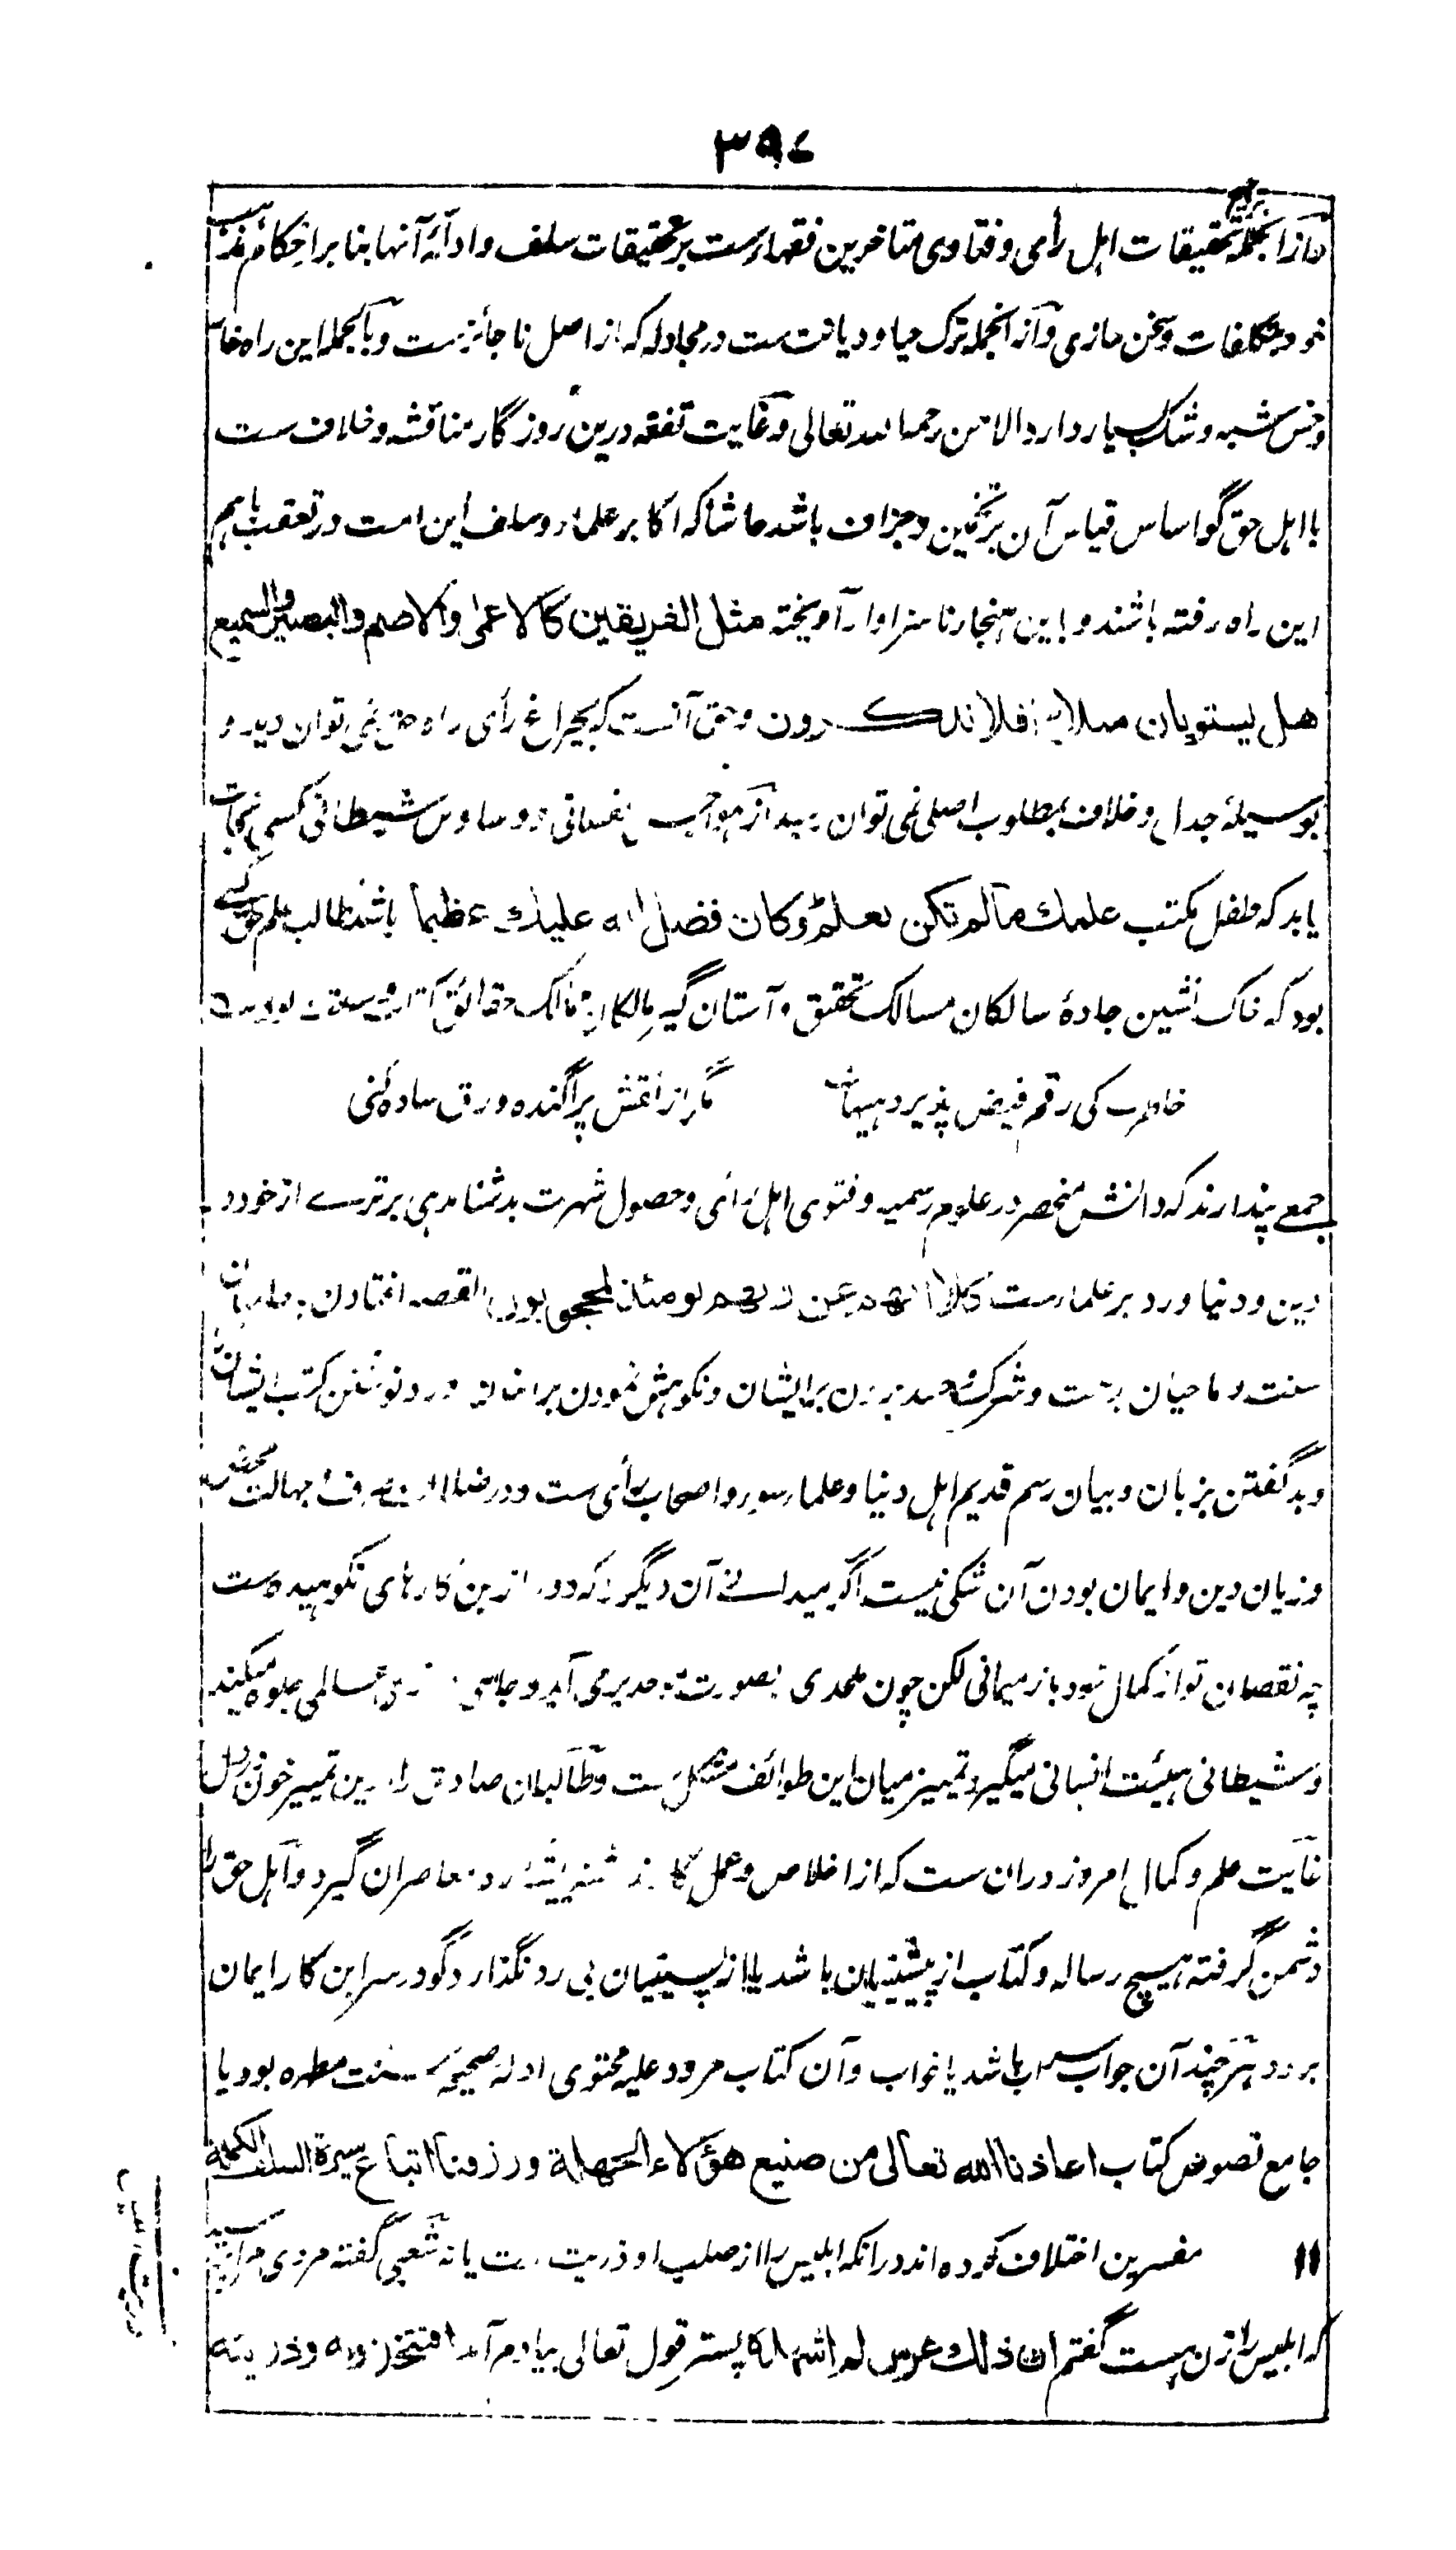 ۳۹۷
وازانجمله ترجیح تحقیقات اہل رأمی وفتاوی متاخرین فقہارست برتحقیقات سلف وادلۀ آنہا بنا براحکام مذہب
خود بتکلفات وسخن سازی وآزانجمله ترک حیا ودیانت ست درمجادله که ازاصل ناجائزست وبالجمله این راه خاک
وخس شبه وشک بسیار دارد الا من رحمه الله تعالی وغایت تفقه درین روزگار مناقشه وخلاف ست
بااہل حق گو اساس قیاس آن برتخمین وجزاف باشد حاشا که اکابر علمار وسلف این امت درتعقب باہم
این راه رفته باشند وباین ہنجار ناسزاوار آویخته مثل الفریقین کالاعمی والاصم والبصیر والسمیع
هل یستویان مثلا افلا تذکرون وحق آنست که بچراغ رأی راه حق نمی توان دید و
بوسیلۀ جدال وخلاف بمطلوب اصلی نمی توان رسید از ہواجس نفسانی ووساوس شیطانی کسی نجات
یابد که طفل مکتب علمك مالم تکن تعلم وکان فضل الله علیك عظیما باشد طالب علم حق کسے
بود که خاک نشین جادۀ سالکان مسالک تحقیق وآستان گیر مالکان ممالک حقائق کتاب وسنت بود
خاطرت کی رقم فیض پذیرد ہیہات مگر از نقش پراگنده ورق ساده کنی
جمعے پندارند که دانش منحصر درعلوم رسمیه وفتوی اہل رأی وحصول شہرت بدشنامدہی برترے ازخود در
دین ودنیا ورد برعلمارست کلا انهم عن ربهم یومئذ لمحجوبون القصه افتادن به
سنت وماحیان بدعت وشرک وحسد بردن برایشان ونکوہش نمودن برانها ورد نوشتن برکتب ایشان
وبدگفتن بزبان وبیان رسم قدیم اہل دنیا وعلمار سور واصحاب رأی ست ودرضلال صرف وجہالت محض
وزیان دین وایمان بودن آن شکی نیست اگر میدانے آن دیگر که دور ازین کارہای نکوہیده ست
چه نقصان تو ازکمال خود باز میمانی لکن چون ملحدی بصورت موحد برمی آید وجاہلی بزی عالمی جلوه میکند
وشیطانی ہیئت انسانی میگیرد تمییز میان این طوائف مشکل ست وطالبان صادق را درین تمییز خون دل
غایت علم وکمال امروز دران ست که ازاخلاص وعمل معاصران گیرد وآہل حق را
دشمن گرفته ہیچ رساله وکتاب ازپیشینیان باشد یا ازپسینیان بی رد نگذارد گو درسر این کار ایمان
برود ہرچند آن جواب سراب باشد یا خواب وآن کتاب مردود علیه محتوی ادلۀ صحیحۀ سنت مطہره بود یا
جامع نصوص کتاب اعاذنا الله تعالی من صنیع هؤلاء الجهلة ورزقنا اتباع سیرة السلف الکملة
۱۱ مفسرین اختلاف کرده اند درانکه ابلیس را ازصلب او ذریت ست یانه شعبی گفته مردی مرا پرسید
که ابلیس را زن ہست گفتم ان ذلك عرس لم اشهده پستر قول تعالی بیادم آمد افتتخذونه وذریته